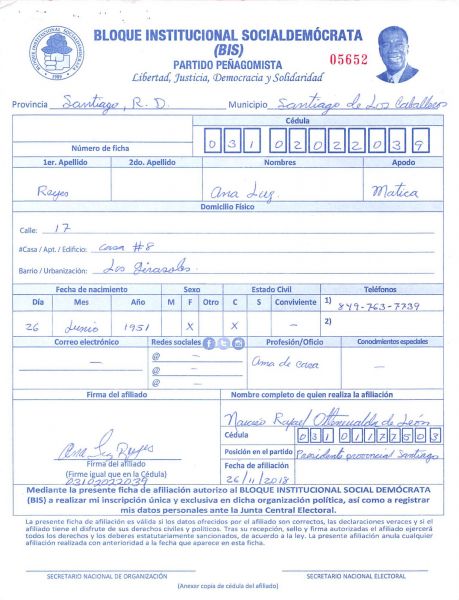 BLOQUE INSTITUCIONAL SOCIALDEMÓCRATA
(BIS)
PARTIDO PEÑAGOMISTA
05652
Libertad, Justicia, Democracia y Solidaridad
Provincia Santiago, R.D. Municipio Santiago de Los Caballeros
Cédula
Número de ficha 031 02022039
1er. Apellido 2do. Apellido Nombres Apodo
Reyes Ana Luz Matica
Domicilio Físico
Calle: 17
#Casa / Apt. / Edificio: Casa #8
Barrio / Urbanización: Los Girasoles
Fecha de nacimiento Sexo Estado Civil Teléfonos
Día Mes Año M F Otro C S Conviviente 1) 849-763-7739
26 Junio 1951 X X — 2)
Correo electrónico Redes sociales Profesión/Oficio Conocimientos especiales
@ — Ama de casa —
@ —
@
Firma del afiliado Nombre completo de quien realiza la afiliación
Narciso Rafael de León
Cédula
Ana Luz Reyes
Posición en el partido Presidente provincial Santiago
Firma del afiliado
(Firme igual que en la Cédula)
Fecha de afiliación
03102022039
26/11/2018
Mediante la presente ficha de afiliación autorizo al BLOQUE INSTITUCIONAL SOCIAL DEMÓCRATA
(BIS) a realizar mi inscripción única y exclusiva en dicha organización política, así como a registrar
mis datos personales ante la Junta Central Electoral.
La presente ficha de afiliación es válida si los datos ofrecidos por el afiliado son correctos, las declaraciones veraces y si el
afiliado tiene el disfrute de sus derechos civiles y políticos. Tras su recepción, sello y firma autorizadas el afiliado ejercerá
todos los derechos y los deberes estatutariamente sancionados, de acuerdo a la ley. La presente afiliación anula cualquier
afiliación realizada con anterioridad a la fecha que aparece en esta ficha.
SECRETARIO NACIONAL DE ORGANIZACIÓN SECRETARIO NACIONAL ELECTORAL
(Anexar copia de cédula del afiliado)